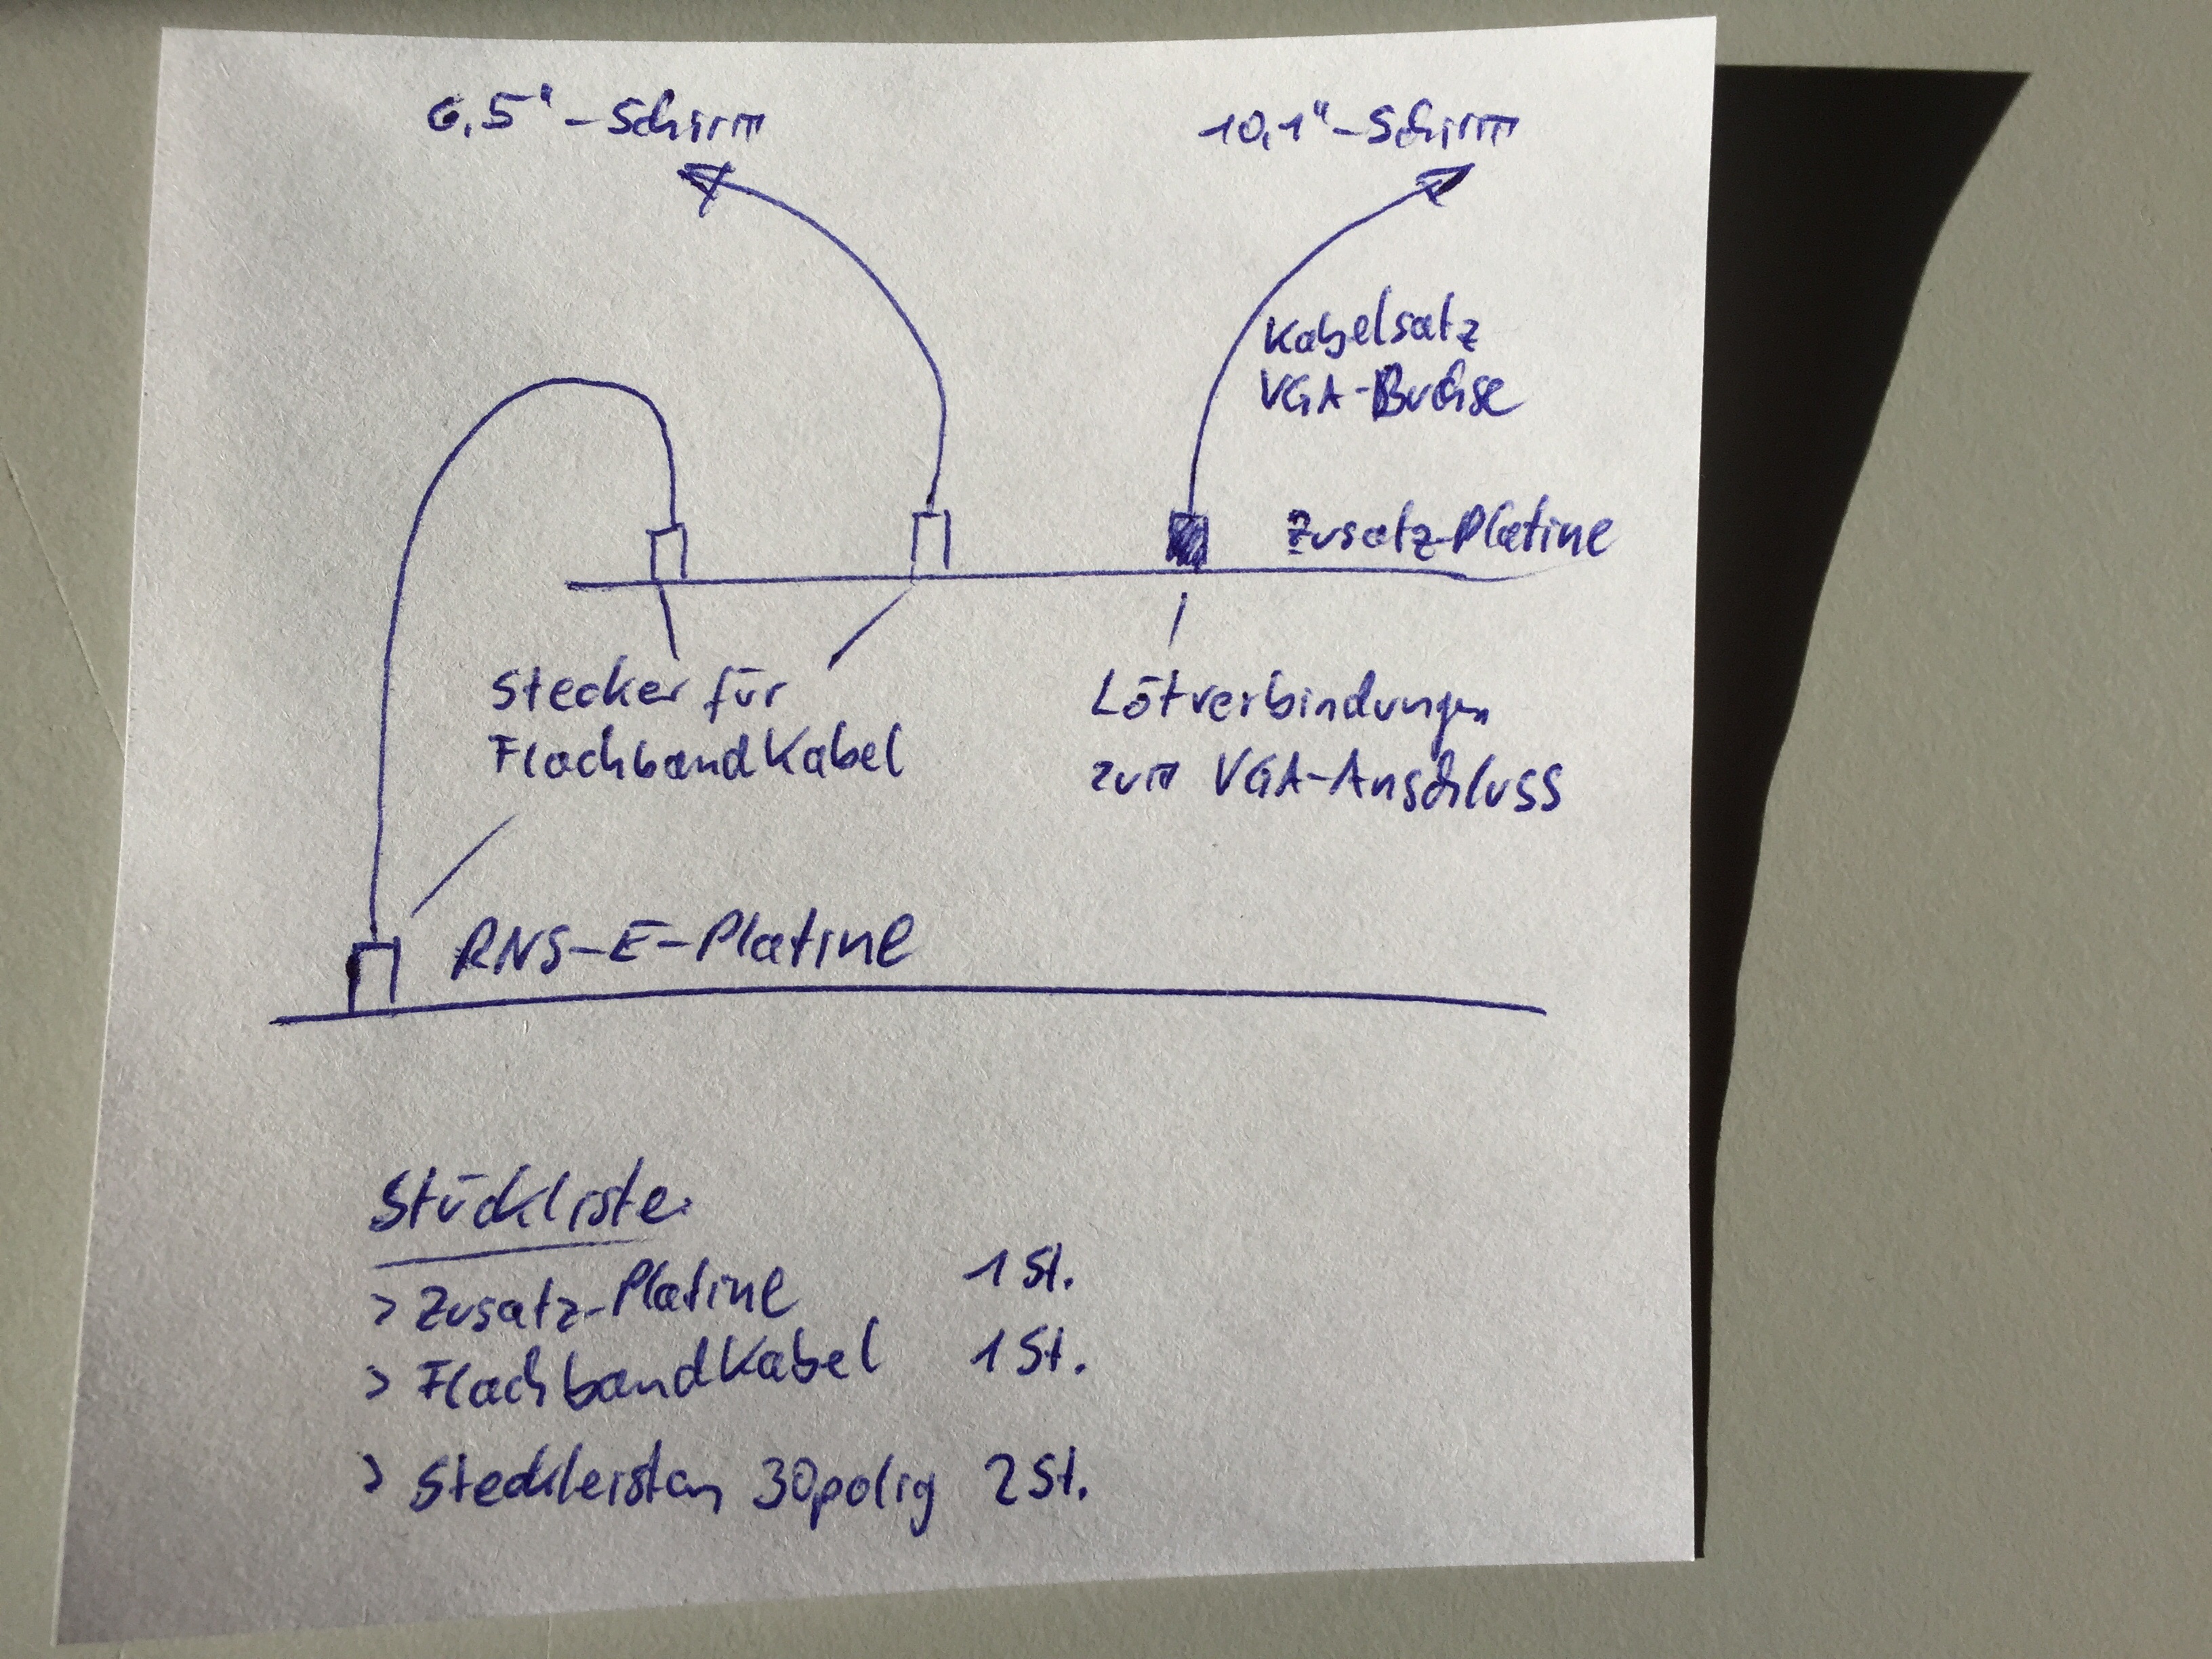 6,5"-Schirm
10,1"-Schirm
Kabelsatz
VGA-Buchse
Zusatz-Platine
Stecker für
Flachbandkabel
Lötverbindungen
zum VGA-Anschluss
RNS-E-Platine
Stückliste:
> Zusatz-Platine 1 St.
> Flachbandkabel 1 St.
> Steckleisten 30polig 2 St.